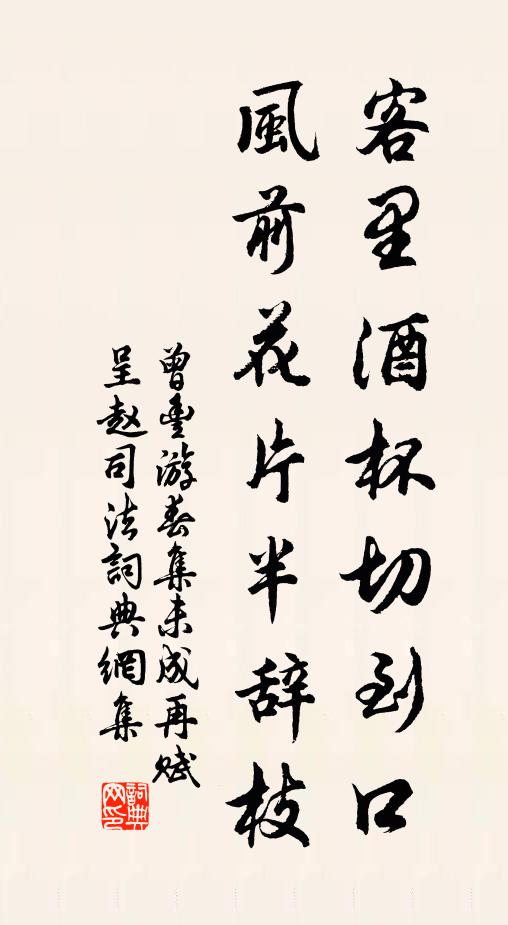 客里酒杯切到口
風前花片半辞枝
曾豊游春集未成再赋
呈赵司法詞典網集
詞典网印